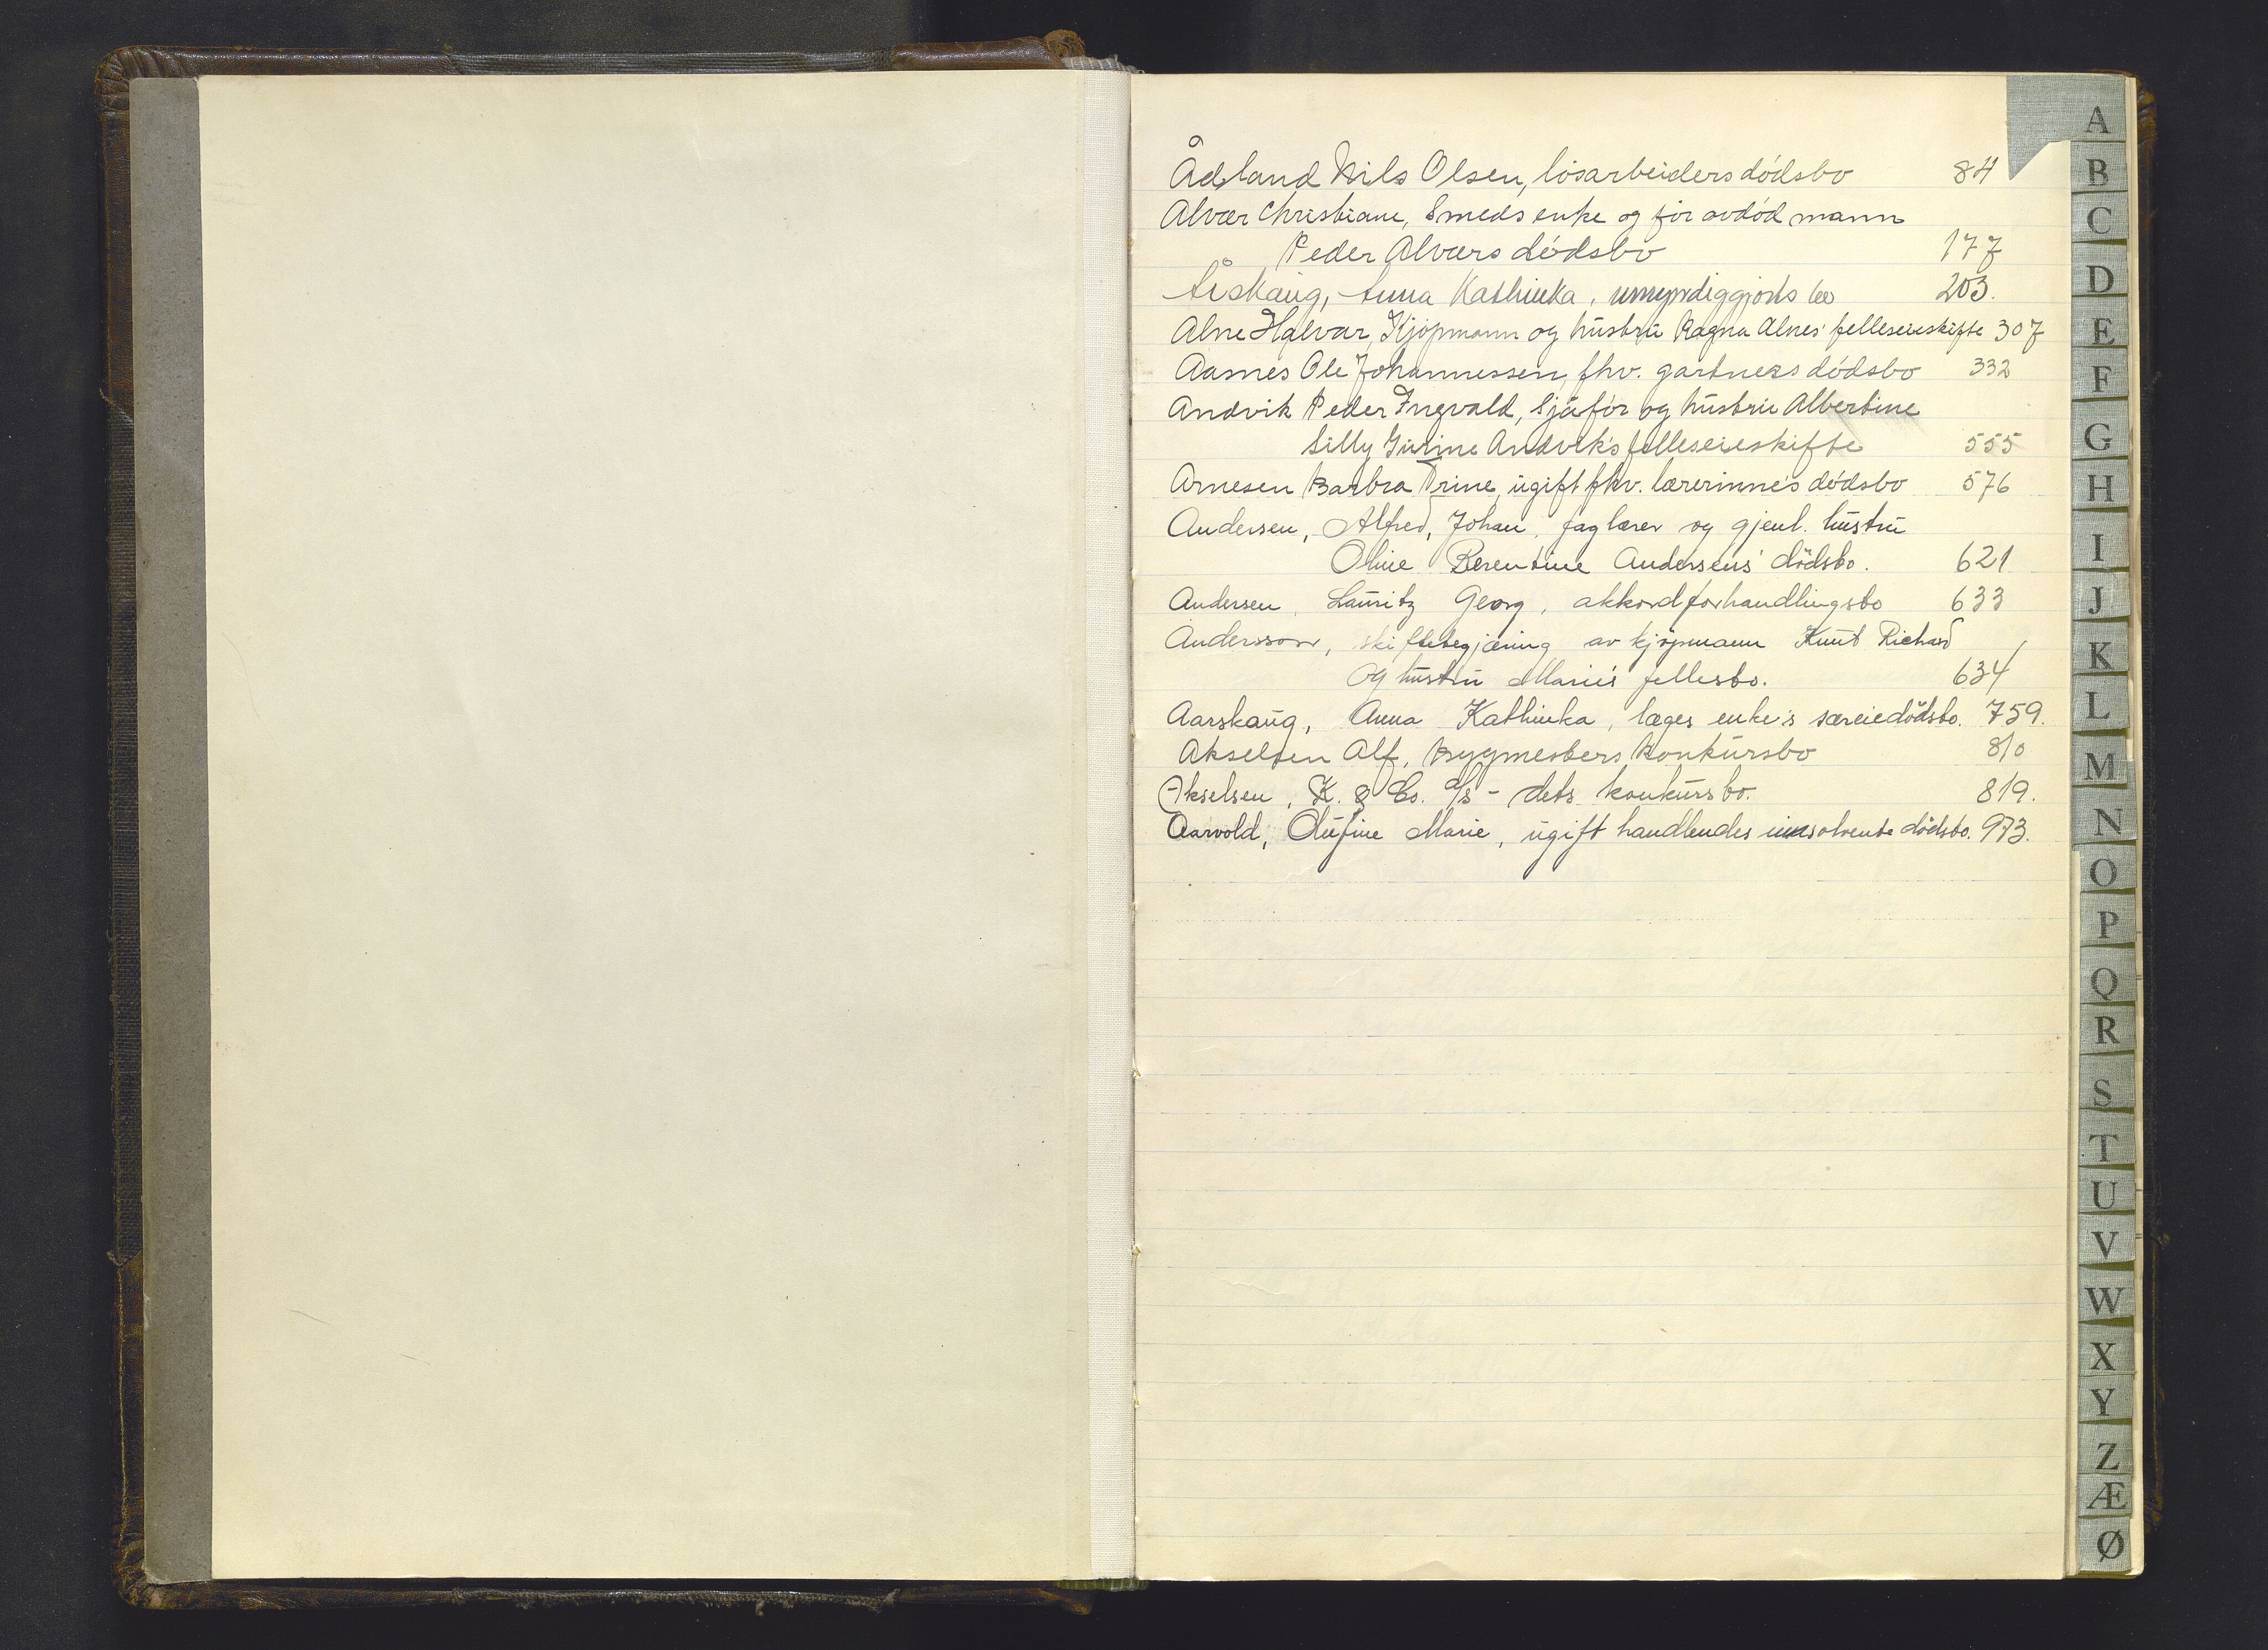 Ådland Nils Olsen, løsarbeiders dødsbo 84
Alvær Christiane, Smeds enke og før avdød mann
Peder Alværs dødsbo 177
Årskaug, Anna Kathinka, umyndiggjorts bo 203.
Alne Halvar, Kjøpmann og hustru Ragna Alnes' felleseieskifte 307
Aasnes Ole Johannessen, fhv. gartners dødsbo 332
Andvik Peder Ingvald, Sjåfør og hustru Albertine
Silly Andvik's felleseieskifte 555
Arnesen Barbra Trine, ugift fhv. lærerinne's dødsbo 576
Andersen, Alfred, Johan, faglærer og gjenl. hustru
Oline Berentine Andersens' dødsbo. 621
Andersen, Lauritz Georg, akkordforhandlingsbo 633
Andersson, skiftebegjæring av kjøpmann Knut Richard
og hustru Marie's fellesbo. 634
Aarskaug, Anna Kathinka, læges enke's særeiedødsbo. 759.
Akselsen Alf, Bygmesters konkursbo 810
Akselsen, K. & Co. A/S - dets konkursbo. 819.
Aarvold, Olufine Marie, ugift handlendes insolvente dødsbo. 973.
A
B
C
D
E
F
G
H
I
J
K
L
M
N
O
P
Q
R
S
T
U
V
W
X
Y
Z
Æ
Ø